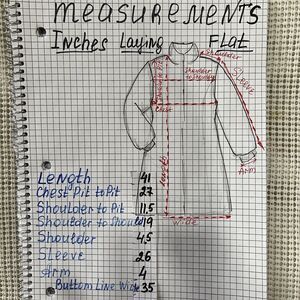 MEASUREMENTS
Inches Laying Flat
Shoulder
SLEEVE
Shoulder to Shoulder
Chest
Arm
Wide
Length 41
Chest Pit to Pit 27
Shoulder to Pit 11,5
Shoulder to Should 19
Shoulder 4,5
SLEEVE 26
Arm 4
Bottom Line Wide 35